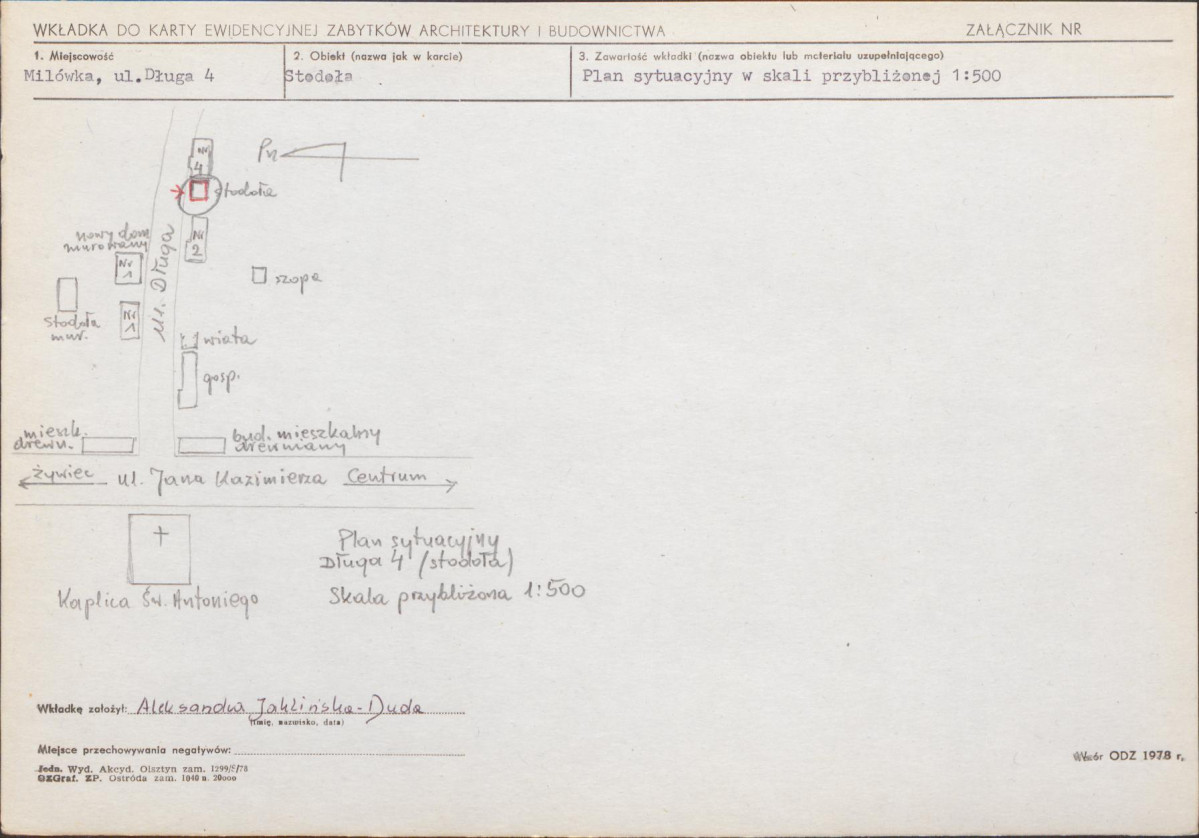 WKŁADKA DO KARTY EWIDENCYJNEJ ZABYTKÓW ARCHITEKTURY I BUDOWNICTWA
ZAŁĄCZNIK NR
1. Miejscowość
Milówka, ul.Długa 4
2. Obiekt (nazwa jak w karcie)
Stodoła
3. Zawartość wkładki (nazwa obiektu lub materiału uzupełniającego)
Plan sytuacyjny w skali przybliżonej 1:500
Nr
4
Pn
stodoła
nowy dom
murowany
Nr
2
Nr
1
ul. Długa
szopa
stodoła
mur.
Nr
1
wiata
gosp.
mieszk.
drewn.
bud. mieszkalny
drewniany
Żywiec
ul. Jana Kazimierza
Centrum
Plan sytuacyjny
Długa 4 (stodoła)
Skala przybliżona 1:500
Kaplica Św. Antoniego
Wkładkę założył: Aleksandra Jaklińska-Duda
(imię, nazwisko, data)
Miejsce przechowywania negatywów:
Jedn. Wyd. Akcyd. Olsztyn zam. 1299/S/78
OZGraf. ZP. Ostróda zam. 1040 n. 20000
Wzór ODZ 1978 r.